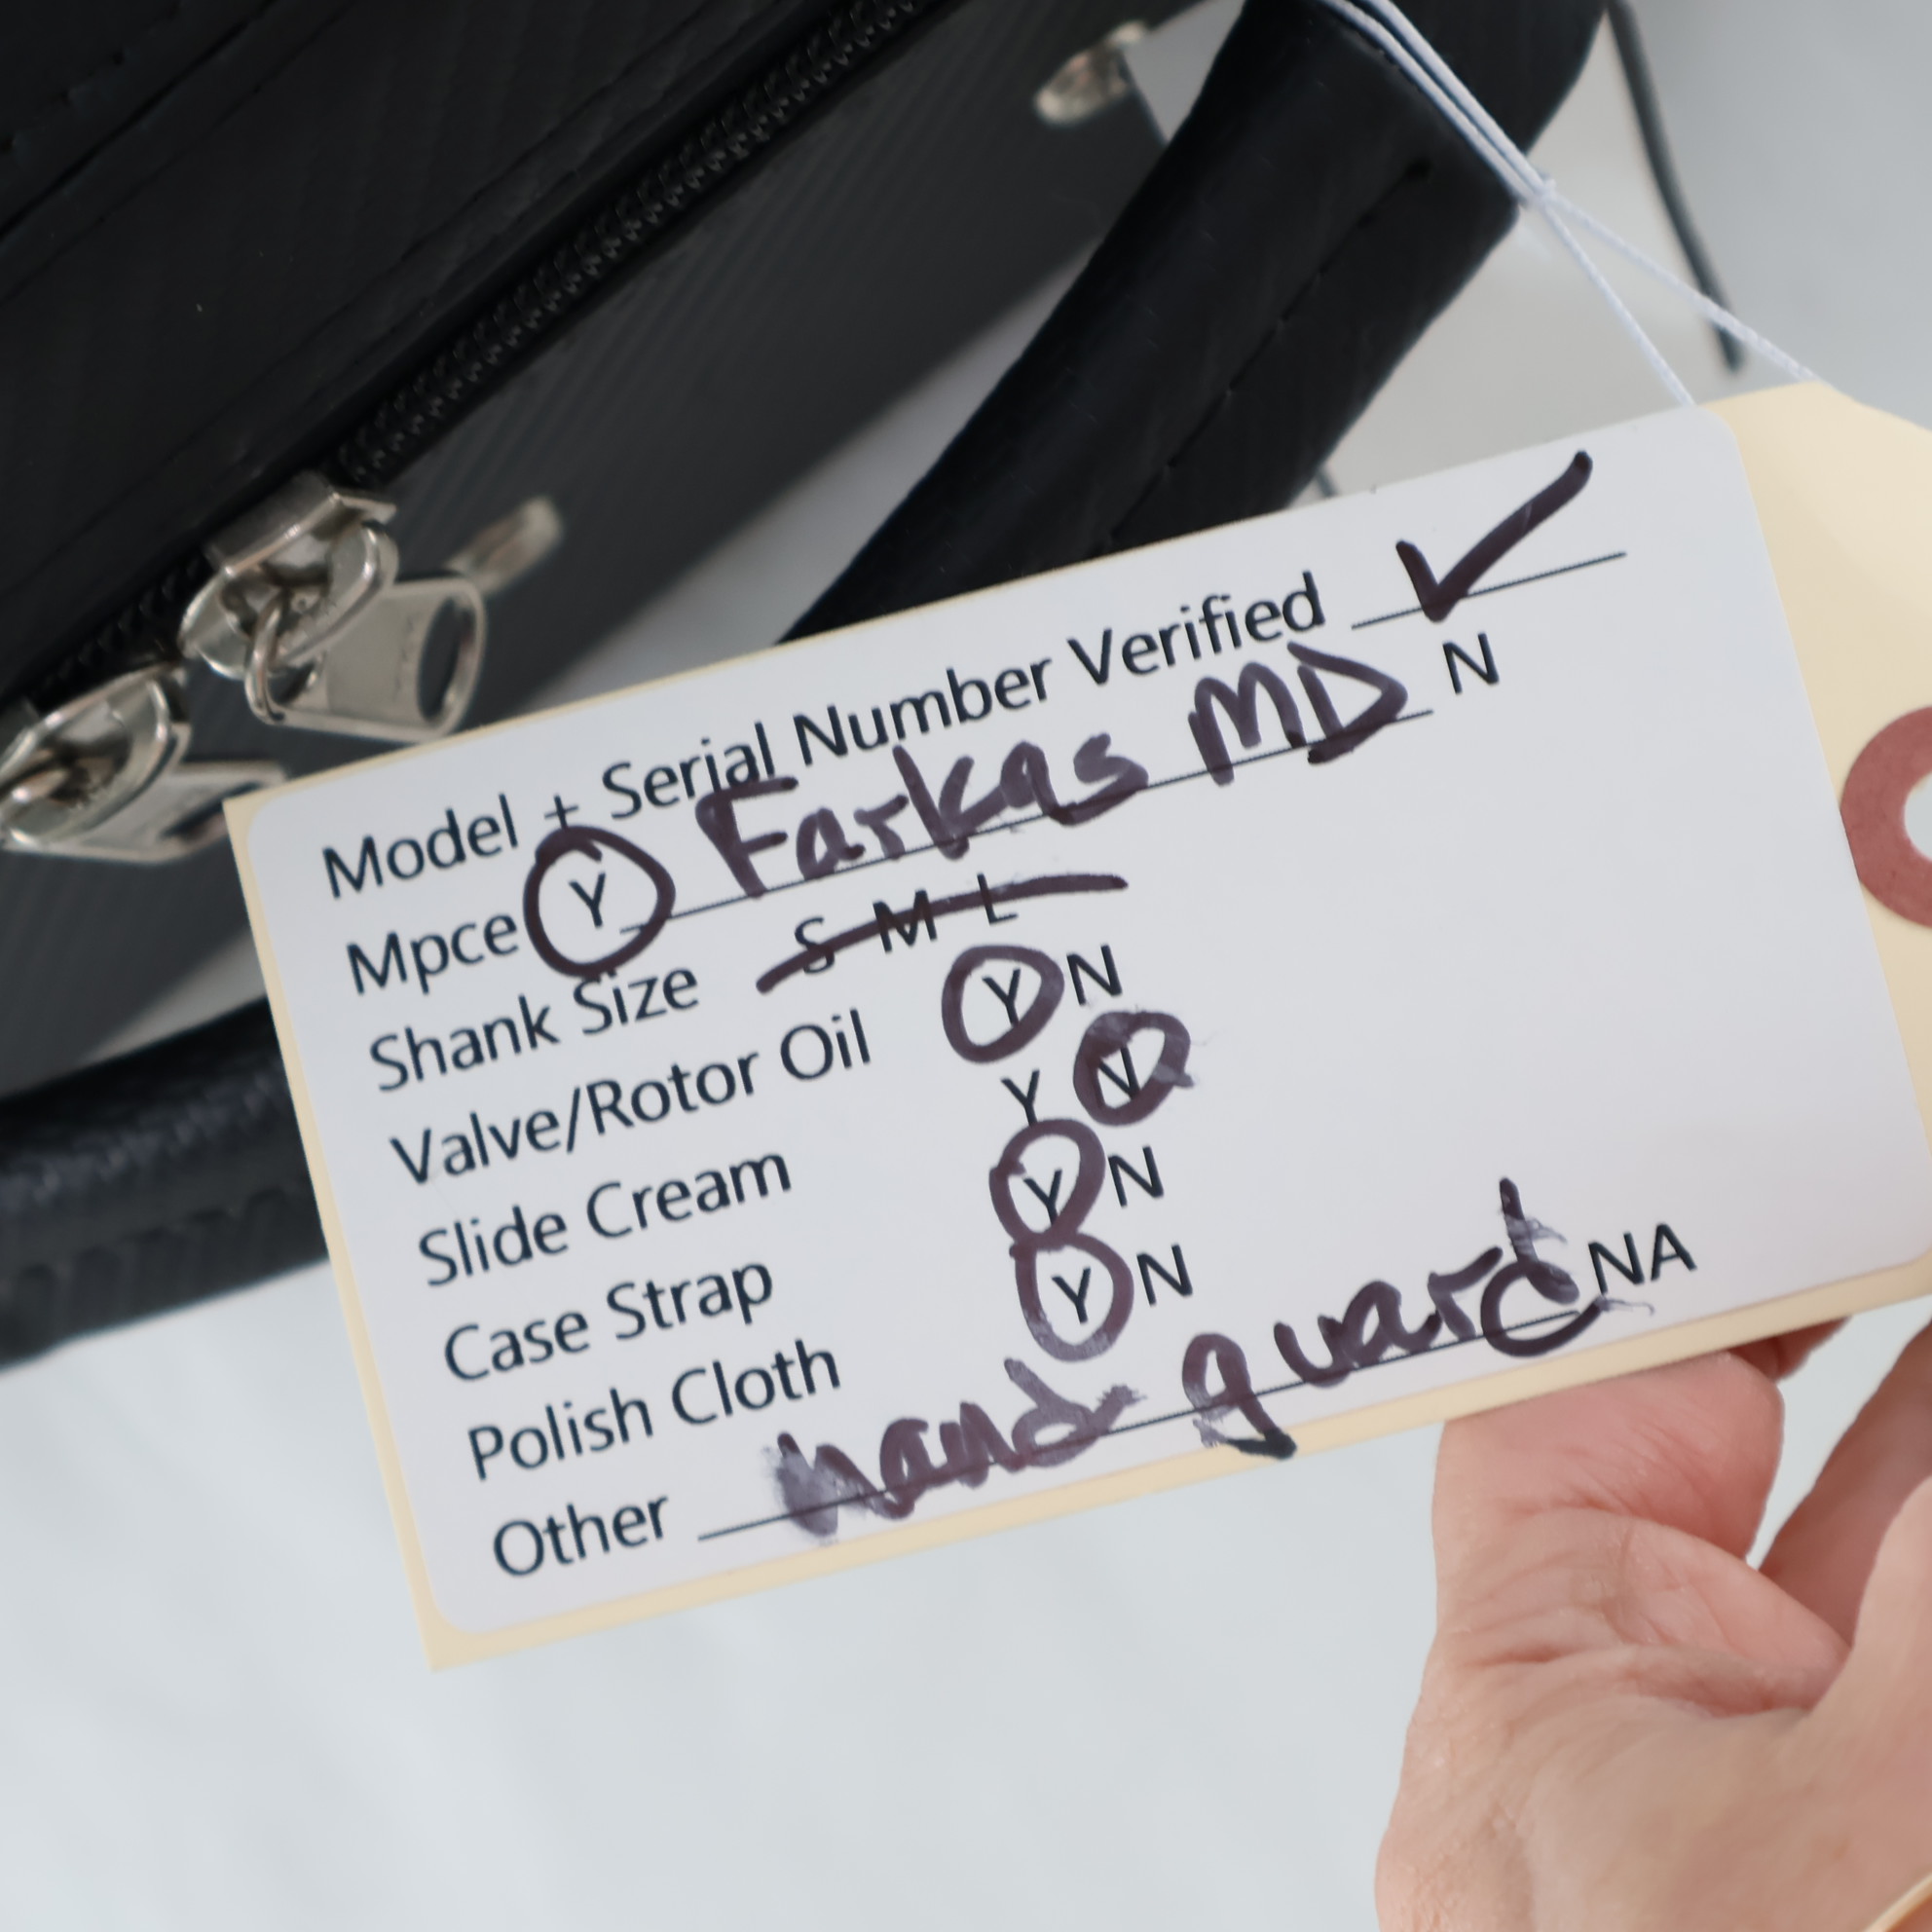 Model + Serial Number Verified ✓
Mpce Y Farkas MD N
Shank Size S M L
Valve/Rotor Oil Y N
Slide Cream Y N
Case Strap Y N
Polish Cloth Y N
Other hand guard NA